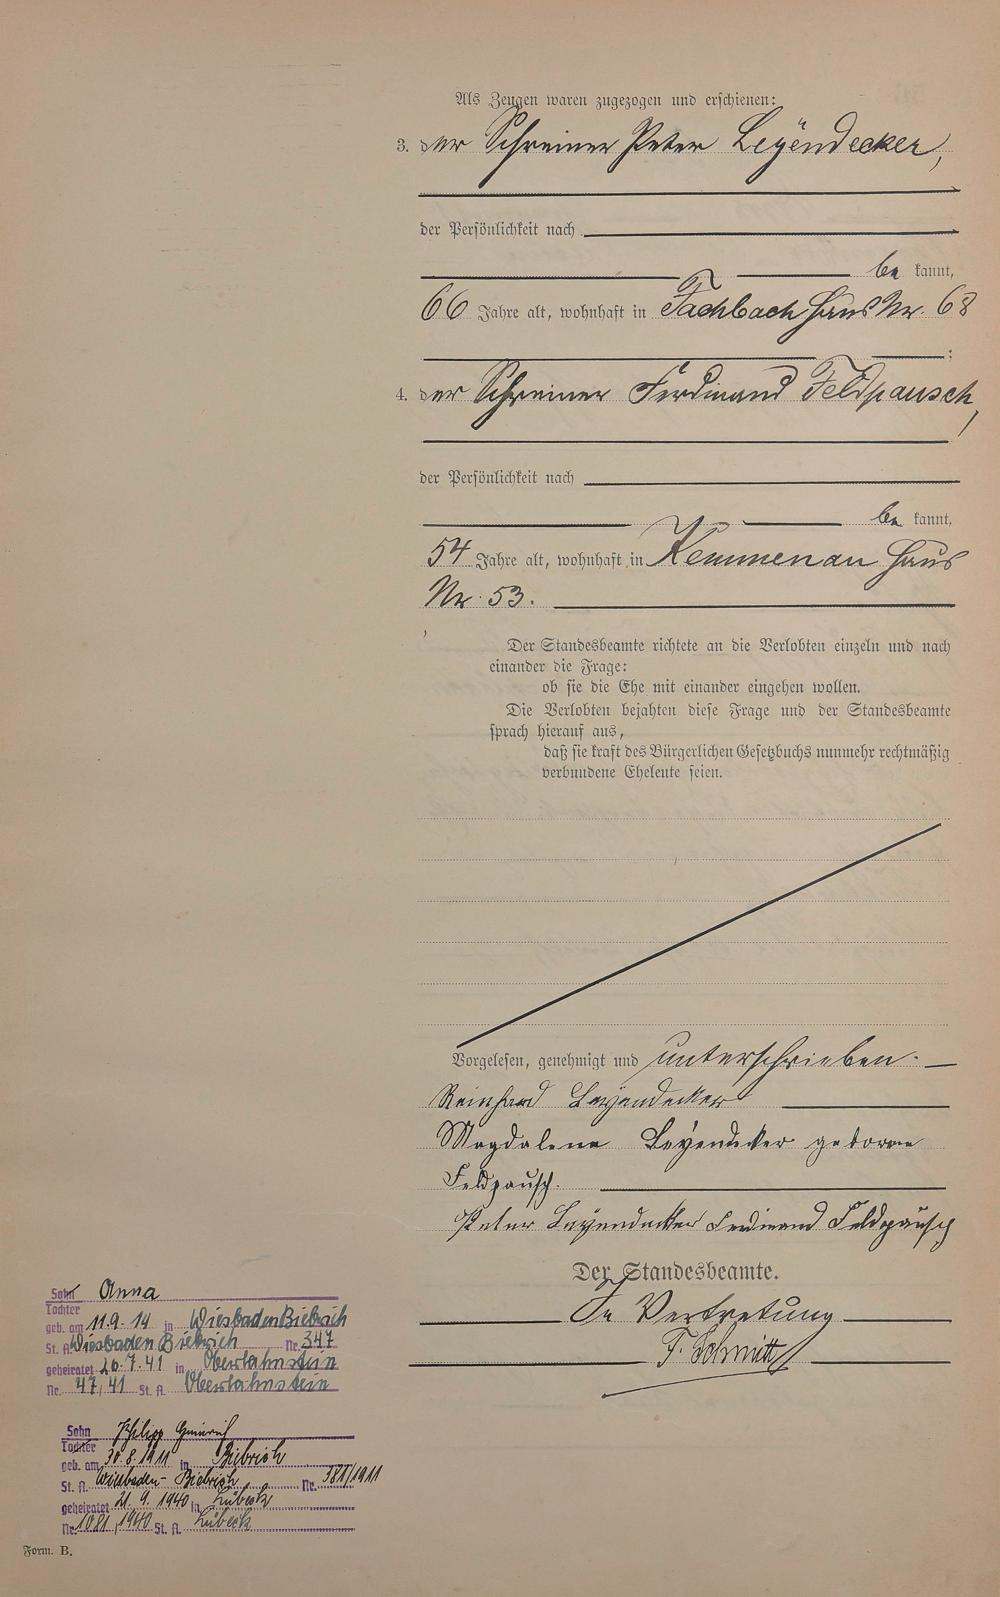 Als Zeugen waren zugezogen und erschienen:
3. der Schreiner Peter Leÿendecker,
der Persönlichkeit nach
be kannt,
66 Jahre alt, wohnhaft in Fachbach Haus Nr. 68
;
4. der Schreiner Ferdinand Feldpausch,
der Persönlichkeit nach
be kannt,
54 Jahre alt, wohnhaft in Kemmenau Haus
Nr. 53.
Der Standesbeamte richtete an die Verlobten einzeln und nach
einander die Frage:
ob sie die Ehe mit einander eingehen wollen.
Die Verlobten bejahten diese Frage und der Standesbeamte
sprach hierauf aus,
daß sie kraft des Bürgerlichen Gesetzbuchs nunmehr rechtmäßig
verbundene Eheleute seien.
Vorgelesen, genehmigt und unterschrieben.
Reinhard Leyendecker
Magdalena Leyendecker geborene
Feldpausch.
Peter Leyendecker Ferdinand Feldpausch
Der Standesbeamte.
In Vertretung
F. Schmitt
Sohn Anna
Tochter
geb. am 11.9.14 in Wiesbaden Biebrich
St. A. Wiesbaden Biebrich Nr. 347
geheiratet 26.7.41 in Oberlahnstein
Nr. 47/41 St. A. Oberlahnstein
Sohn Philipp Heinrich
Tochter
geb. am 30.8.1911 in Biebrich
St. A. Wiesbaden-Biebrich Nr. 381/1911
geheiratet 21.9.1940 in Lübeck
Nr. 1081/1940 St. A. Lübeck
Form. B.